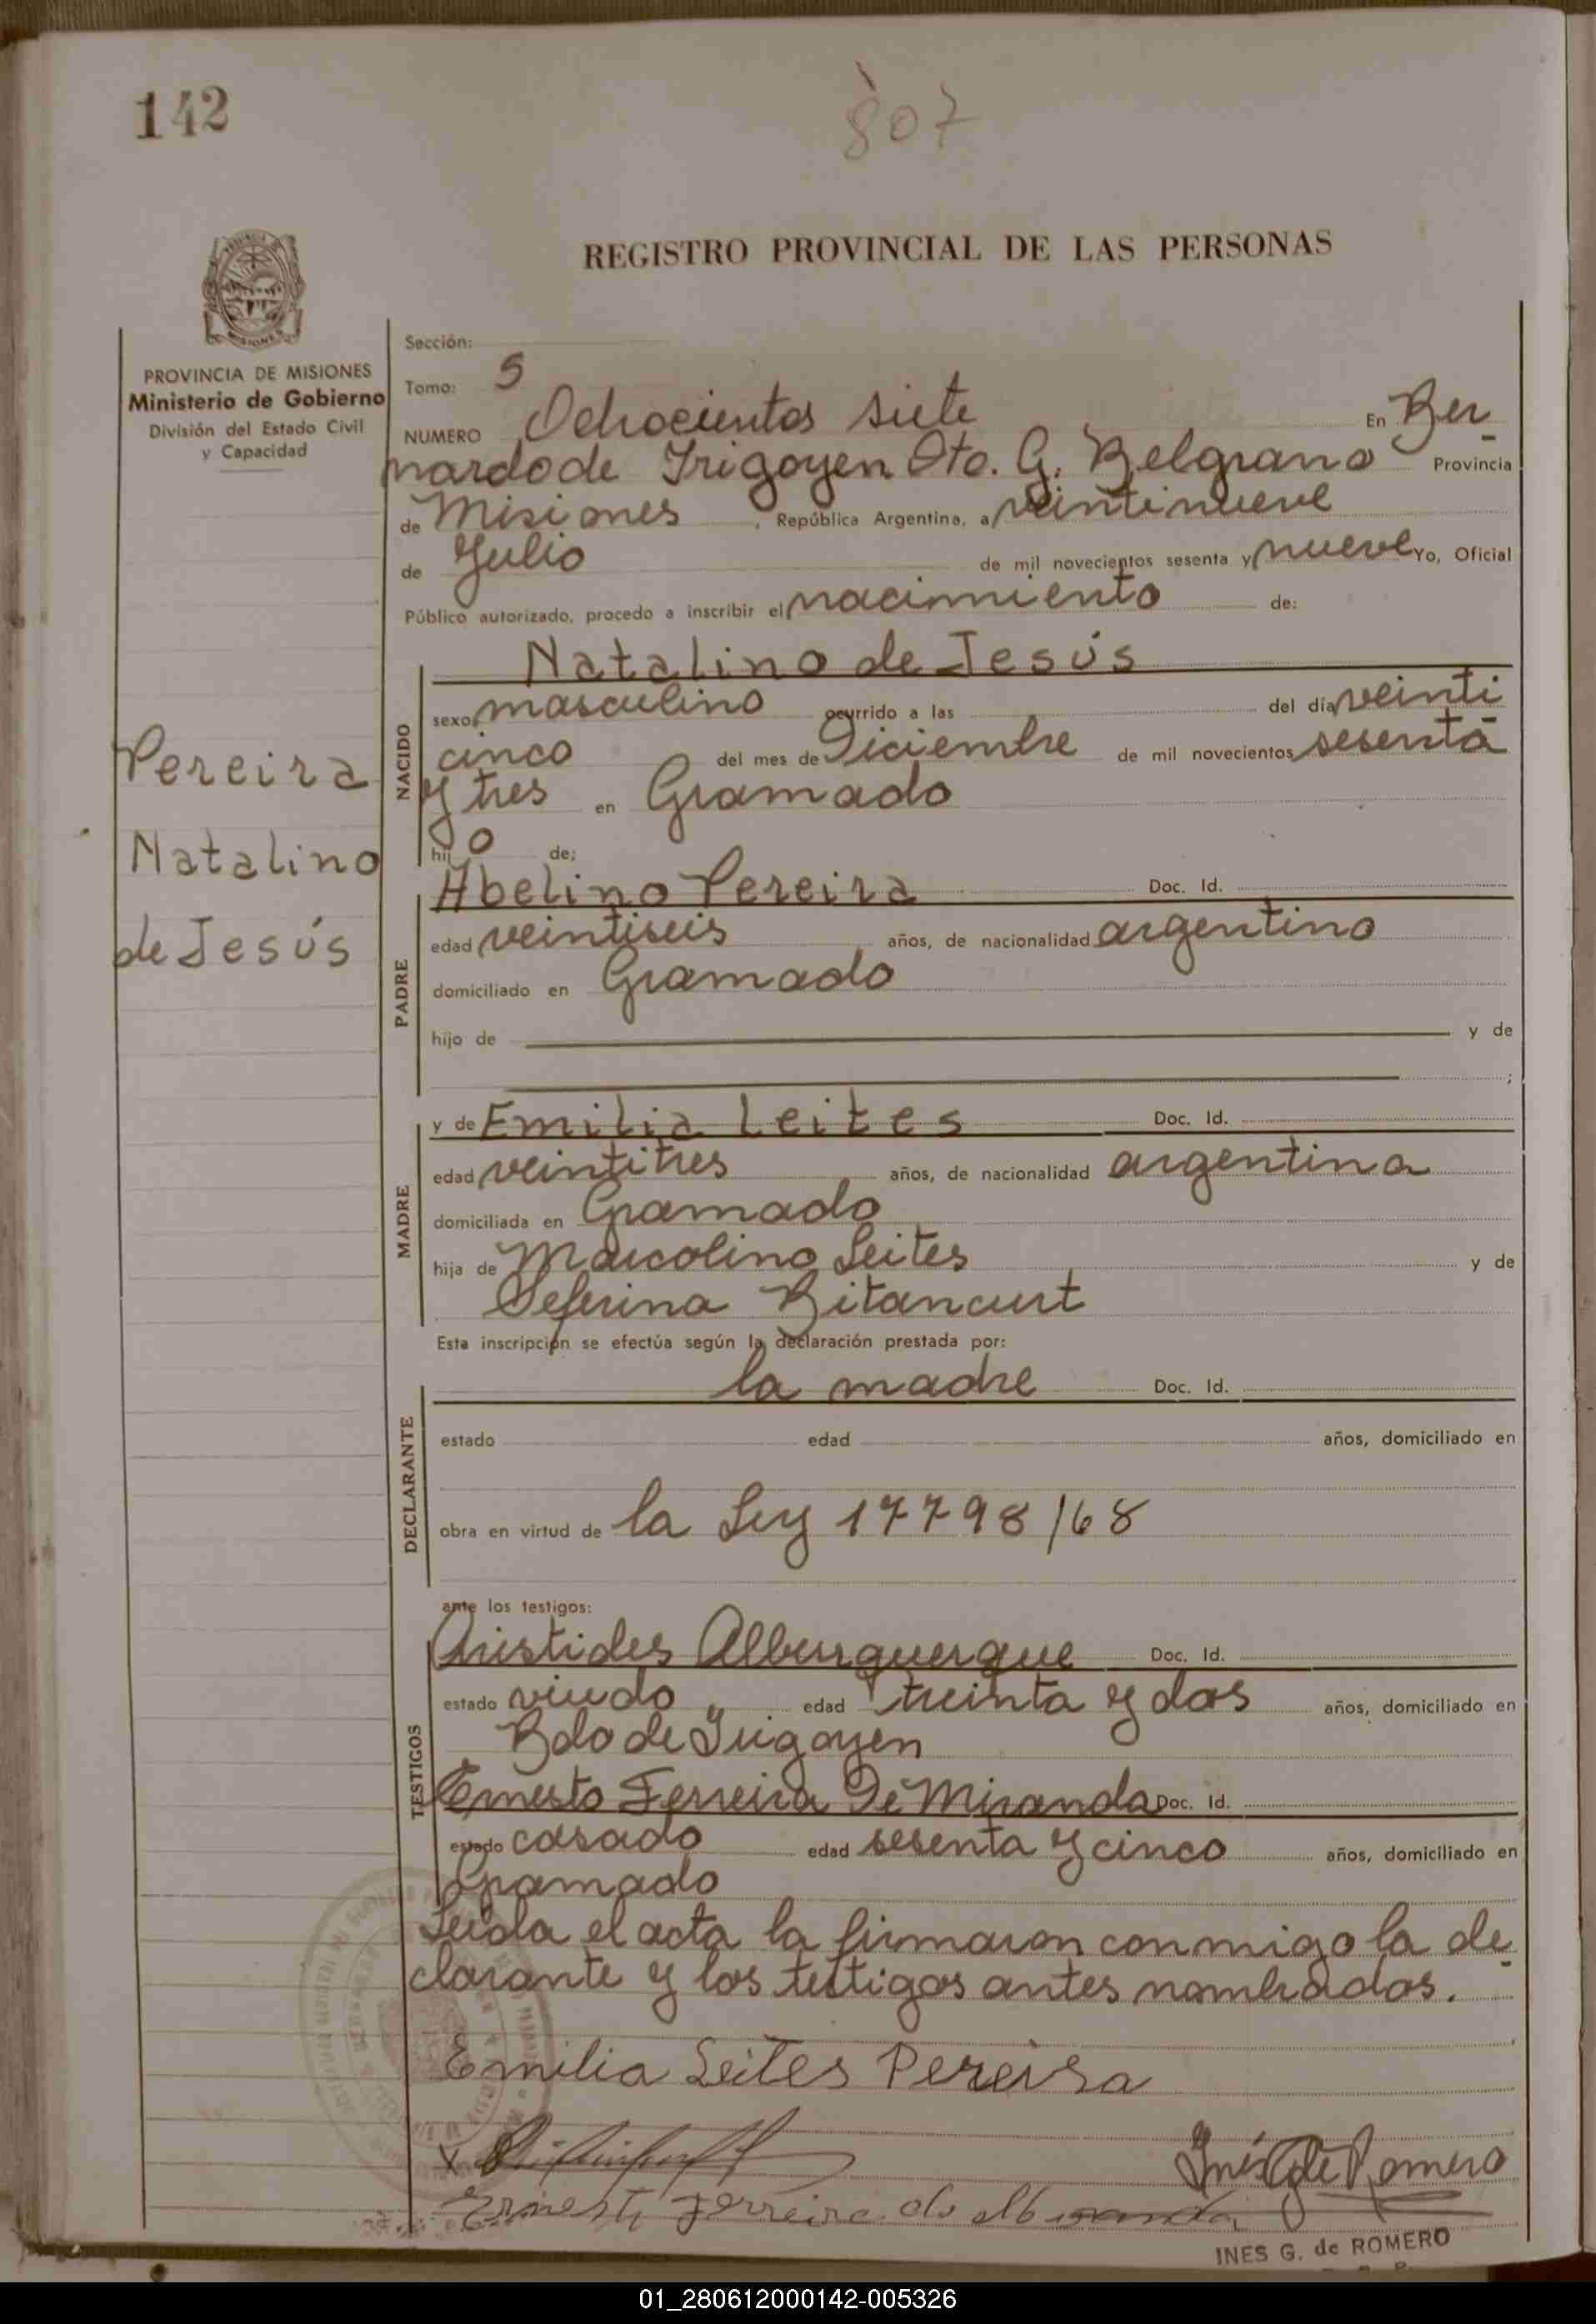 142
807
REGISTRO PROVINCIAL DE LAS PERSONAS
PROVINCIA DE MISIONES
Ministerio de Gobierno
División del Estado Civil
y Capacidad
Pereira
Natalino
de Jesús
Sección:
Tomo: 5
NUMERO Ochocientos siete En Ber-
nardo de Irigoyen Dto. G. Belgrano Provincia
de Misiones, República Argentina, a veintinueve
de Julio de mil novecientos sesenta y nueve Yo, Oficial
Público autorizado, procedo a inscribir el nacimiento de:
Natalino de Jesús
NACIDO
sexo masculino ocurrido a las del día veinti
cinco del mes de Diciembre de mil novecientos sesenta
y tres en Gramado
hijo de:
PADRE
Abelino Pereira Doc. Id.
edad veintiseis años, de nacionalidad argentino
domiciliado en Gramado
hijo de y de
;
MADRE
y de Emilia Leites Doc. Id.
edad veintitres años, de nacionalidad argentina
domiciliada en Gramado
hija de Marcolino Leites y de
Seferina Bitancurt
Esta inscripción se efectúa según la declaración prestada por:
DECLARANTE
la madre Doc. Id.
estado edad años, domiciliado en
obra en virtud de la Ley 17798/68
ante los testigos:
TESTIGOS
Aristides Alburquerque Doc. Id.
estado viudo edad treinta y dos años, domiciliado en
Bdo de Irigoyen
Ernesto Ferreira De Miranda Doc. Id.
estado casado edad sesenta y cinco años, domiciliado en
Gramado
Leida el acta la firmaron conmigo la de-
clarante y los testigos antes nombrados.
Emilia Leites Pereira
X
Inés G. de Romero
Ernesto Ferreira de Miranda
INES G. de ROMERO
01_280612000142-005326